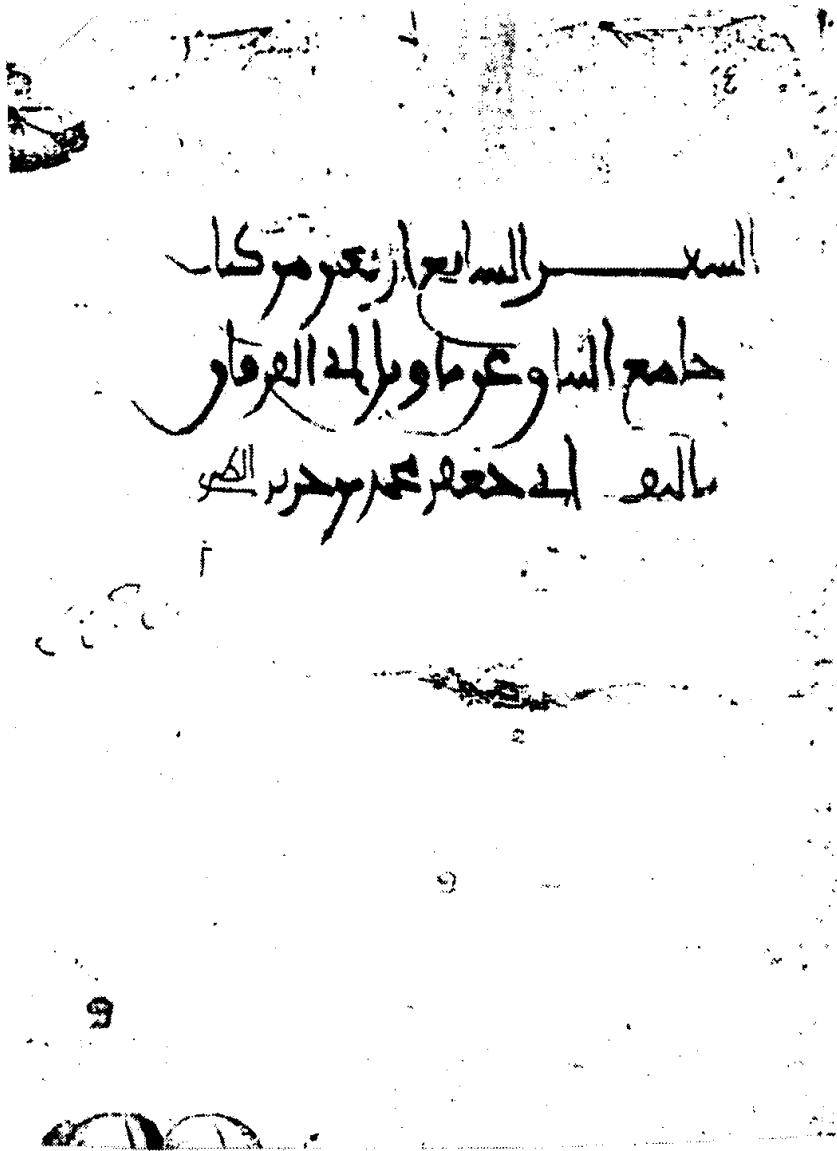 السفر السابع من كتاب
جامع البيان عن تاويل اي الفرقان
تاليف ابي جعفر محمد بن جرير الطبري